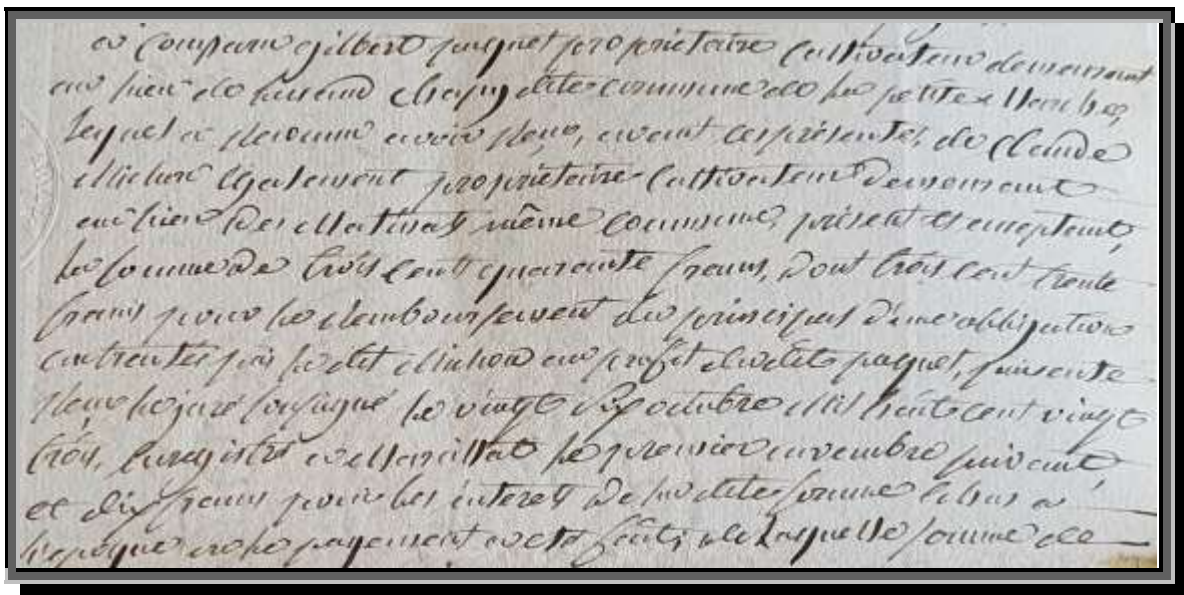 a comparu gilbert paquet proprietaire cultivateur demeurant
au lieu de chapy dite commune de la petite Marche,
lequel a reconnu avoir reçu, avant ces présentes, de Claude
Michon également proprietaire cultivateur demeurant
au lieu des même commune, présent et acceptant,
la somme de trois cent quarante francs, dont trois cent trente
francs pour le remboursement du principal d'une obligation
contractée par le dit Michon au profit du dit paquet, suivante
reçu le juré soussigné le vingt six octobre Mil huit cent vingt
trois, Enregistré a Marcillat le premier novembre suivant,
et dix francs pour les interets de la dite somme a
l'epoque ou le payement a été fait; de Laquelle somme de